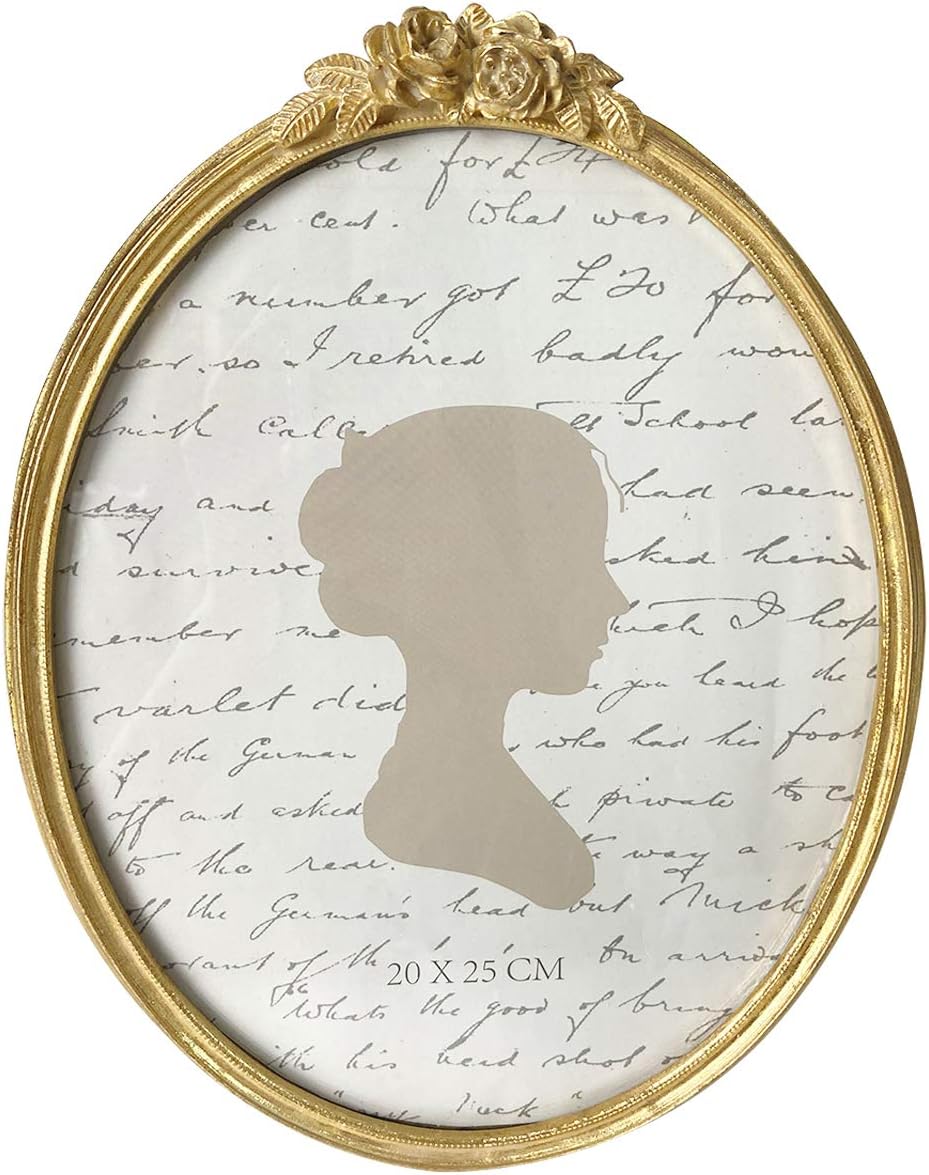 old for £24
per cent. What was
a number got £20 for
so I retired badly wou
Smith Calle at School la
day and had seen
d survive sked him
member me which I hop
varlet did you heard the
of the German , who had his foot
off and asked private to ca
to the rear. the way a sh
off the German's head but Mick
orant of th on arriv
20 X 25 CM
"Whats the good of bring
ith his head shot o